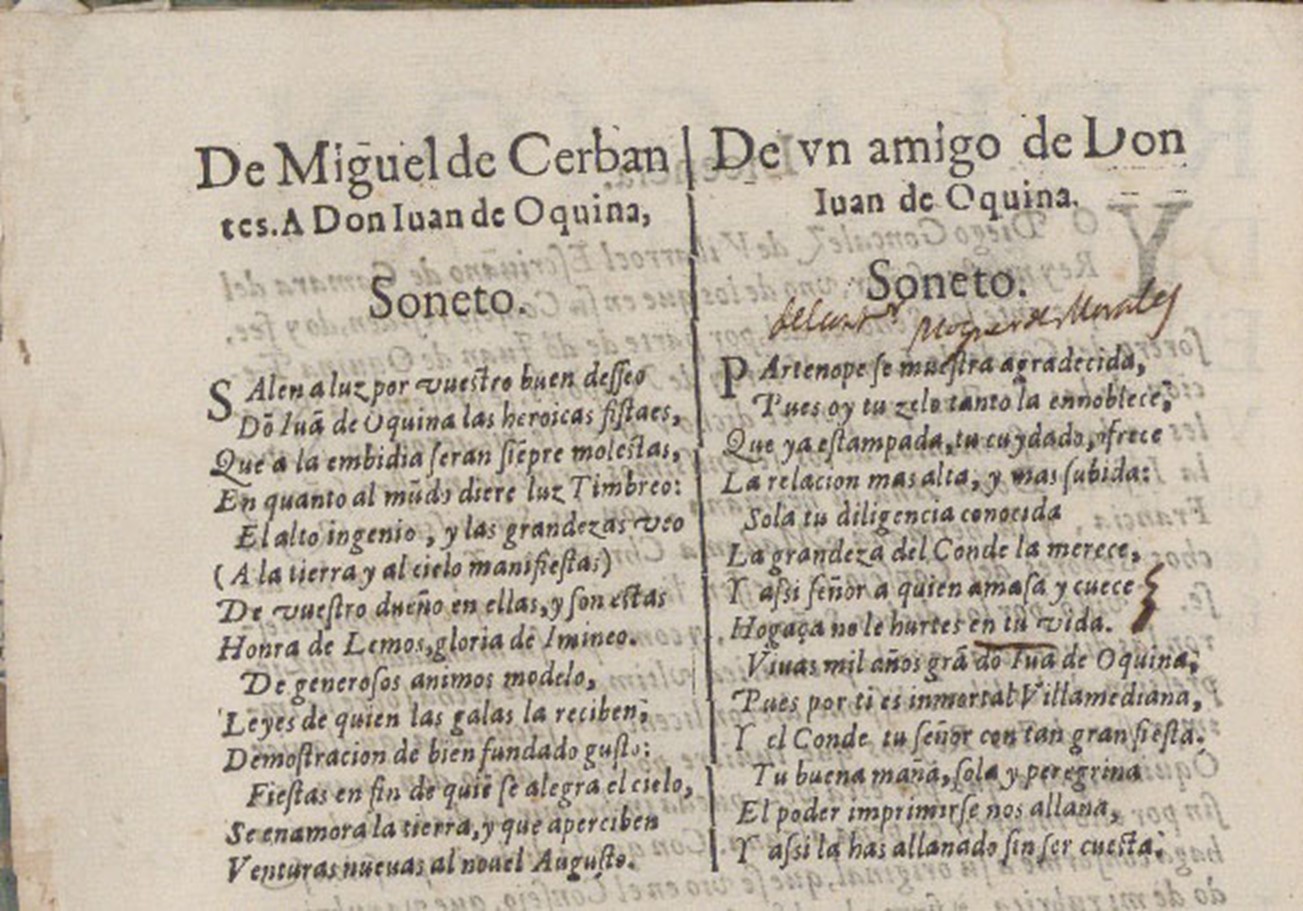 De Miguel de Cerban
tes. A Don Iuan de Oquina,
Soneto.
SAlen a luz por vuestro buen desseo
Dō Iuā de Oquina las heroicas fistaes,
Que a la embidia seran siēpre molestas,
En quanto al mūdo diere luz Timbreo:
El alto ingenio, y las grandezas veo
(A la tierra y al cielo manifiestas)
De vuestro dueño en ellas, y son estas
Honra de Lemos, gloria de Imineo.
De generosos animos modelo,
Leyes de quien las galas la reciben,
Demostracion de bien fundado gusto:
Fiestas en fin de quiē se alegra el cielo,
Se enamora la tierra, y que aperciben
Venturas nueuas al nouel Augusto.
De vn amigo de Don
Iuan de Oquina.
Soneto.
Morales
PArtenope se muestra agradecida,
Pues oy tu zelo tanto la ennoblece,
Que ya estampada, tu cuydado, ofrece
La relacion mas alta, y mas subida:
Sola tu diligencia conocida
La grandeza del Conde la merece,
Y assi señor a quien amasa y cuece
Hogaça no le hurtes en tu vida.
Viuas mil años grā dō Iuā de Oquina,
Pues por ti es inmortal Villamediana,
Y el Conde tu señor con tan gran fiesta.
Tu buena maña, sola y peregrina
El poder imprimirse nos allana,
Y assi la has allanado sin ser cuesta.